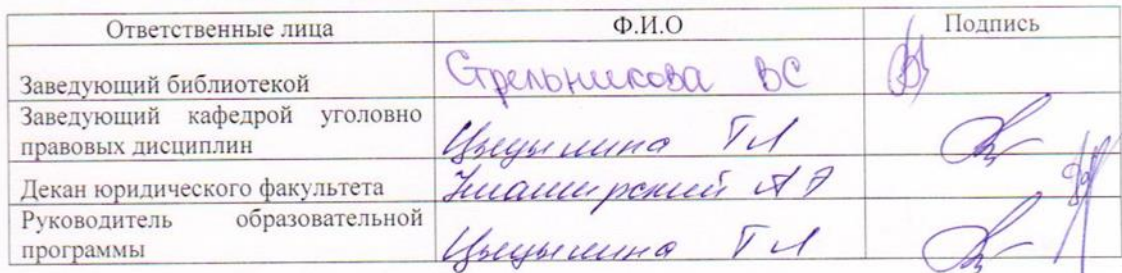 Ответственные лица Ф.И.О Подпись
Заведующий библиотекой Стрельникова ВС
Заведующий кафедрой уголовно
правовых дисциплин Т Л
Декан юридического факультета А Э
Руководитель образовательной
программы Т Л